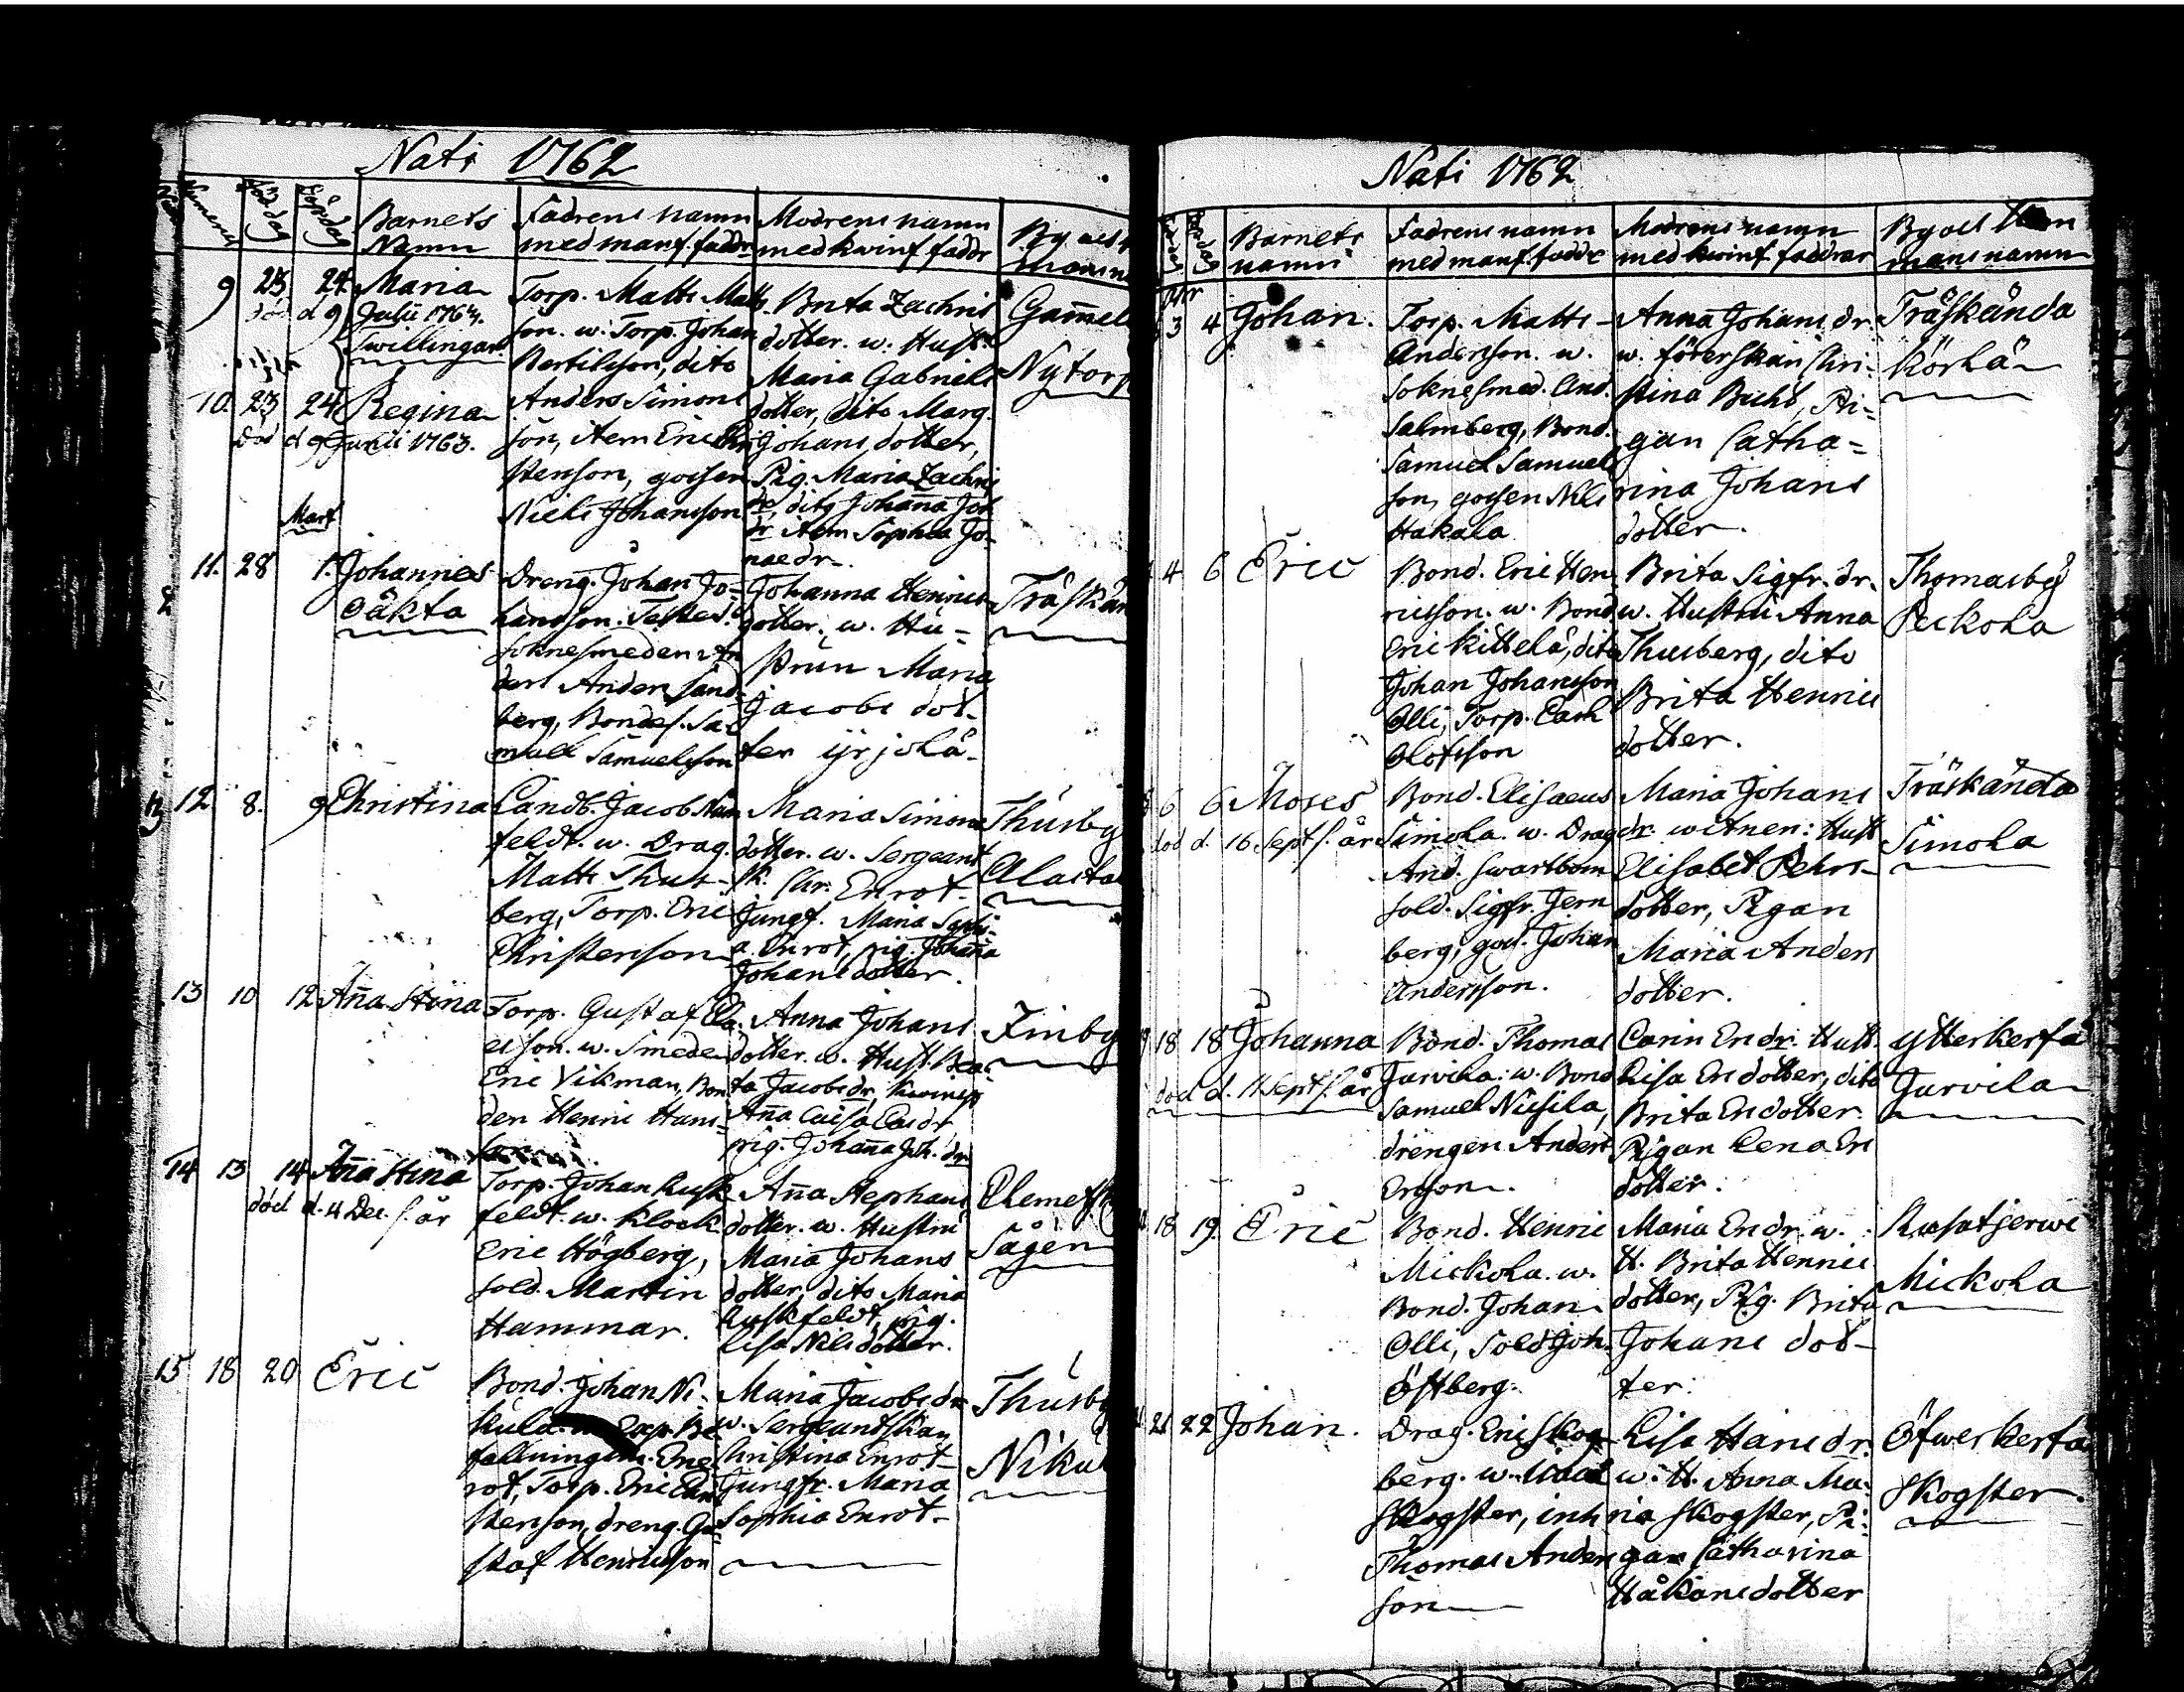 Nati 1762
Numerus
Föd dag
Döpdag
Barnets
Namn
Fadrens namn
med manf. faddr
Modrens namn
med kwinf faddr
By och
9 23 24 Maria
död d 9 Julii 1763.
Twillingar
Torp. Matts Matts
son. w. Torp. Johan
Bertilsson, dito
Anders Simons
son, item Eric Chri
stenson, gossen
Niels Johansson
Brita Zachris
dotter. w. Hust.
Maria Gabriels
dotter, dito Marg.
Johans dotter,
Pig. Maria Zachris
dr, dito Johanna Joh
dr item Sophia Jo
nae dr.
Gammel
Nytorp
10. 23 24 Regina
död d 9 Junii 1763.
Mart
11. 28 1. Johannes
oäkta
Dreng. Johan Jo-
hansson. Testes.
soknesmeden An
ders Anders Sand-
berg, Bondes. Sa-
muel Samuelsson
Johanna Henrics
dotter. w. Hu-
strun Maria
Jacobs dot-
ter yrjolä.
Träskän
12. 8. 9 Christina
Landb. Jacob
feldt. w. Drag.
Matts Thus-
berg, Torp. Eric
Christenson
Maria Simons
dotter. w. Sergeant
sk. Chr. Enrot.
Jungf. Maria Sophi-
a Enrot, pig. Johanna
Johans dotter.
Thusby
Alasta
13 10 12 Anna Stina
Torp. Gustaf Ela-
eisson. w. Smeden
Eric Vikman, Bon
den Henric Hans-
son
Anna Johans
dotter. w. Hust. Bea-
ta Jacobs dr, kwinsp
Anna Caisa Ersdr
pig. Johanna Joh. dr
Finby
14 13 14 Anna Stina
död d. 4 Dec. s. år
Torp. Johan Rusk
feldt. w. Klock
Eric Högberg,
sold. Martin
Hammar.
Anna Stephans
dotter. w. Hustru
Maria Johans
dotter, dito Maria
Ruskfeldt, pig.
Lisa Nils dotter.
Clemets
Sågen
15 18 20 Eric
Bond. Johan Ni-
kula. w. Cap. Be-
fallningsm. Ene
rot, Torp. Eric Chri
stenson, dreng. Gu-
staf Henricsson
Maria Jacobs dr
w. Sergeantskan
Christina Enrot
Jungfr. Maria
Sophia Enrot
Thusby
Niku
Nati 1762
Barnets
namn
Fadrens namn
med manf. faddr
Modrens namn
med kwinf faddrar
By och Hem
mans namn
3 4 Johan.
Torp. Matts
Andersson. w.
soknesmed. And.
Salmberg, Bond.
Samuel Samuels
son, gossen Nils
Hakala
Anna Johans dr.
w. föterskan Chri-
stina Bichs, Pi-
gan Catha-
rina Johans
dotter.
Träskända
Körkä
4 6 Eric
Bond. Eric Hen
ricsson. w. Bond
Eric Kittelä, dito
Johan Johansson
Olli, Torp. Carl
Olofsson
Brita Sigfr. dr.
w. Hustru Anna
Thusberg, dito
Brita Henrics
dotter.
Thomasby
Peckola
6 6 Moses
död d. 16 Sept s. år
Bond. Elisaeus
Simola. w. Drag
And. Swartbom
sold. Sigfr. Jern
berg, goss. Johan
Andersson.
Maria Johans
dr. witnen: Hust
Elisabet Pehrs-
dotter, Pigan
Maria Anders
dotter.
Träskända
Simola
18 18 Johanna
död d. 11 Sept s. år
Bond. Thomas
Jarvila: w. Bond
Samuel Nissila,
drengen Anders
Ersson.
Carin Ers dr. Hust.
Lisa Ers dotter, dito
Brita Ers dotter
Pigan Lena Ers
dotter.
ytterkerfå
Jarvila
18 19. Eric
Bond. Henric
Mickola. w.
Bond. Johan
Olli, Sold Joh.
Östberg.
Maria Ers dr. w.
H. Brita Henrics
dotter, Pig. Brita
Johans dot-
ter.
Rusatjerwi
Mickola
21 22 Johan.
Drag. Eric Skog
berg. w.
Skogster, inh
Thomas Anders
son
Lisa Hans dr.
w. H. Anna Ma-
ria Skogster, Pi-
gan Catharina
Håkans dotter
Öfwerkerfå
Skogster.